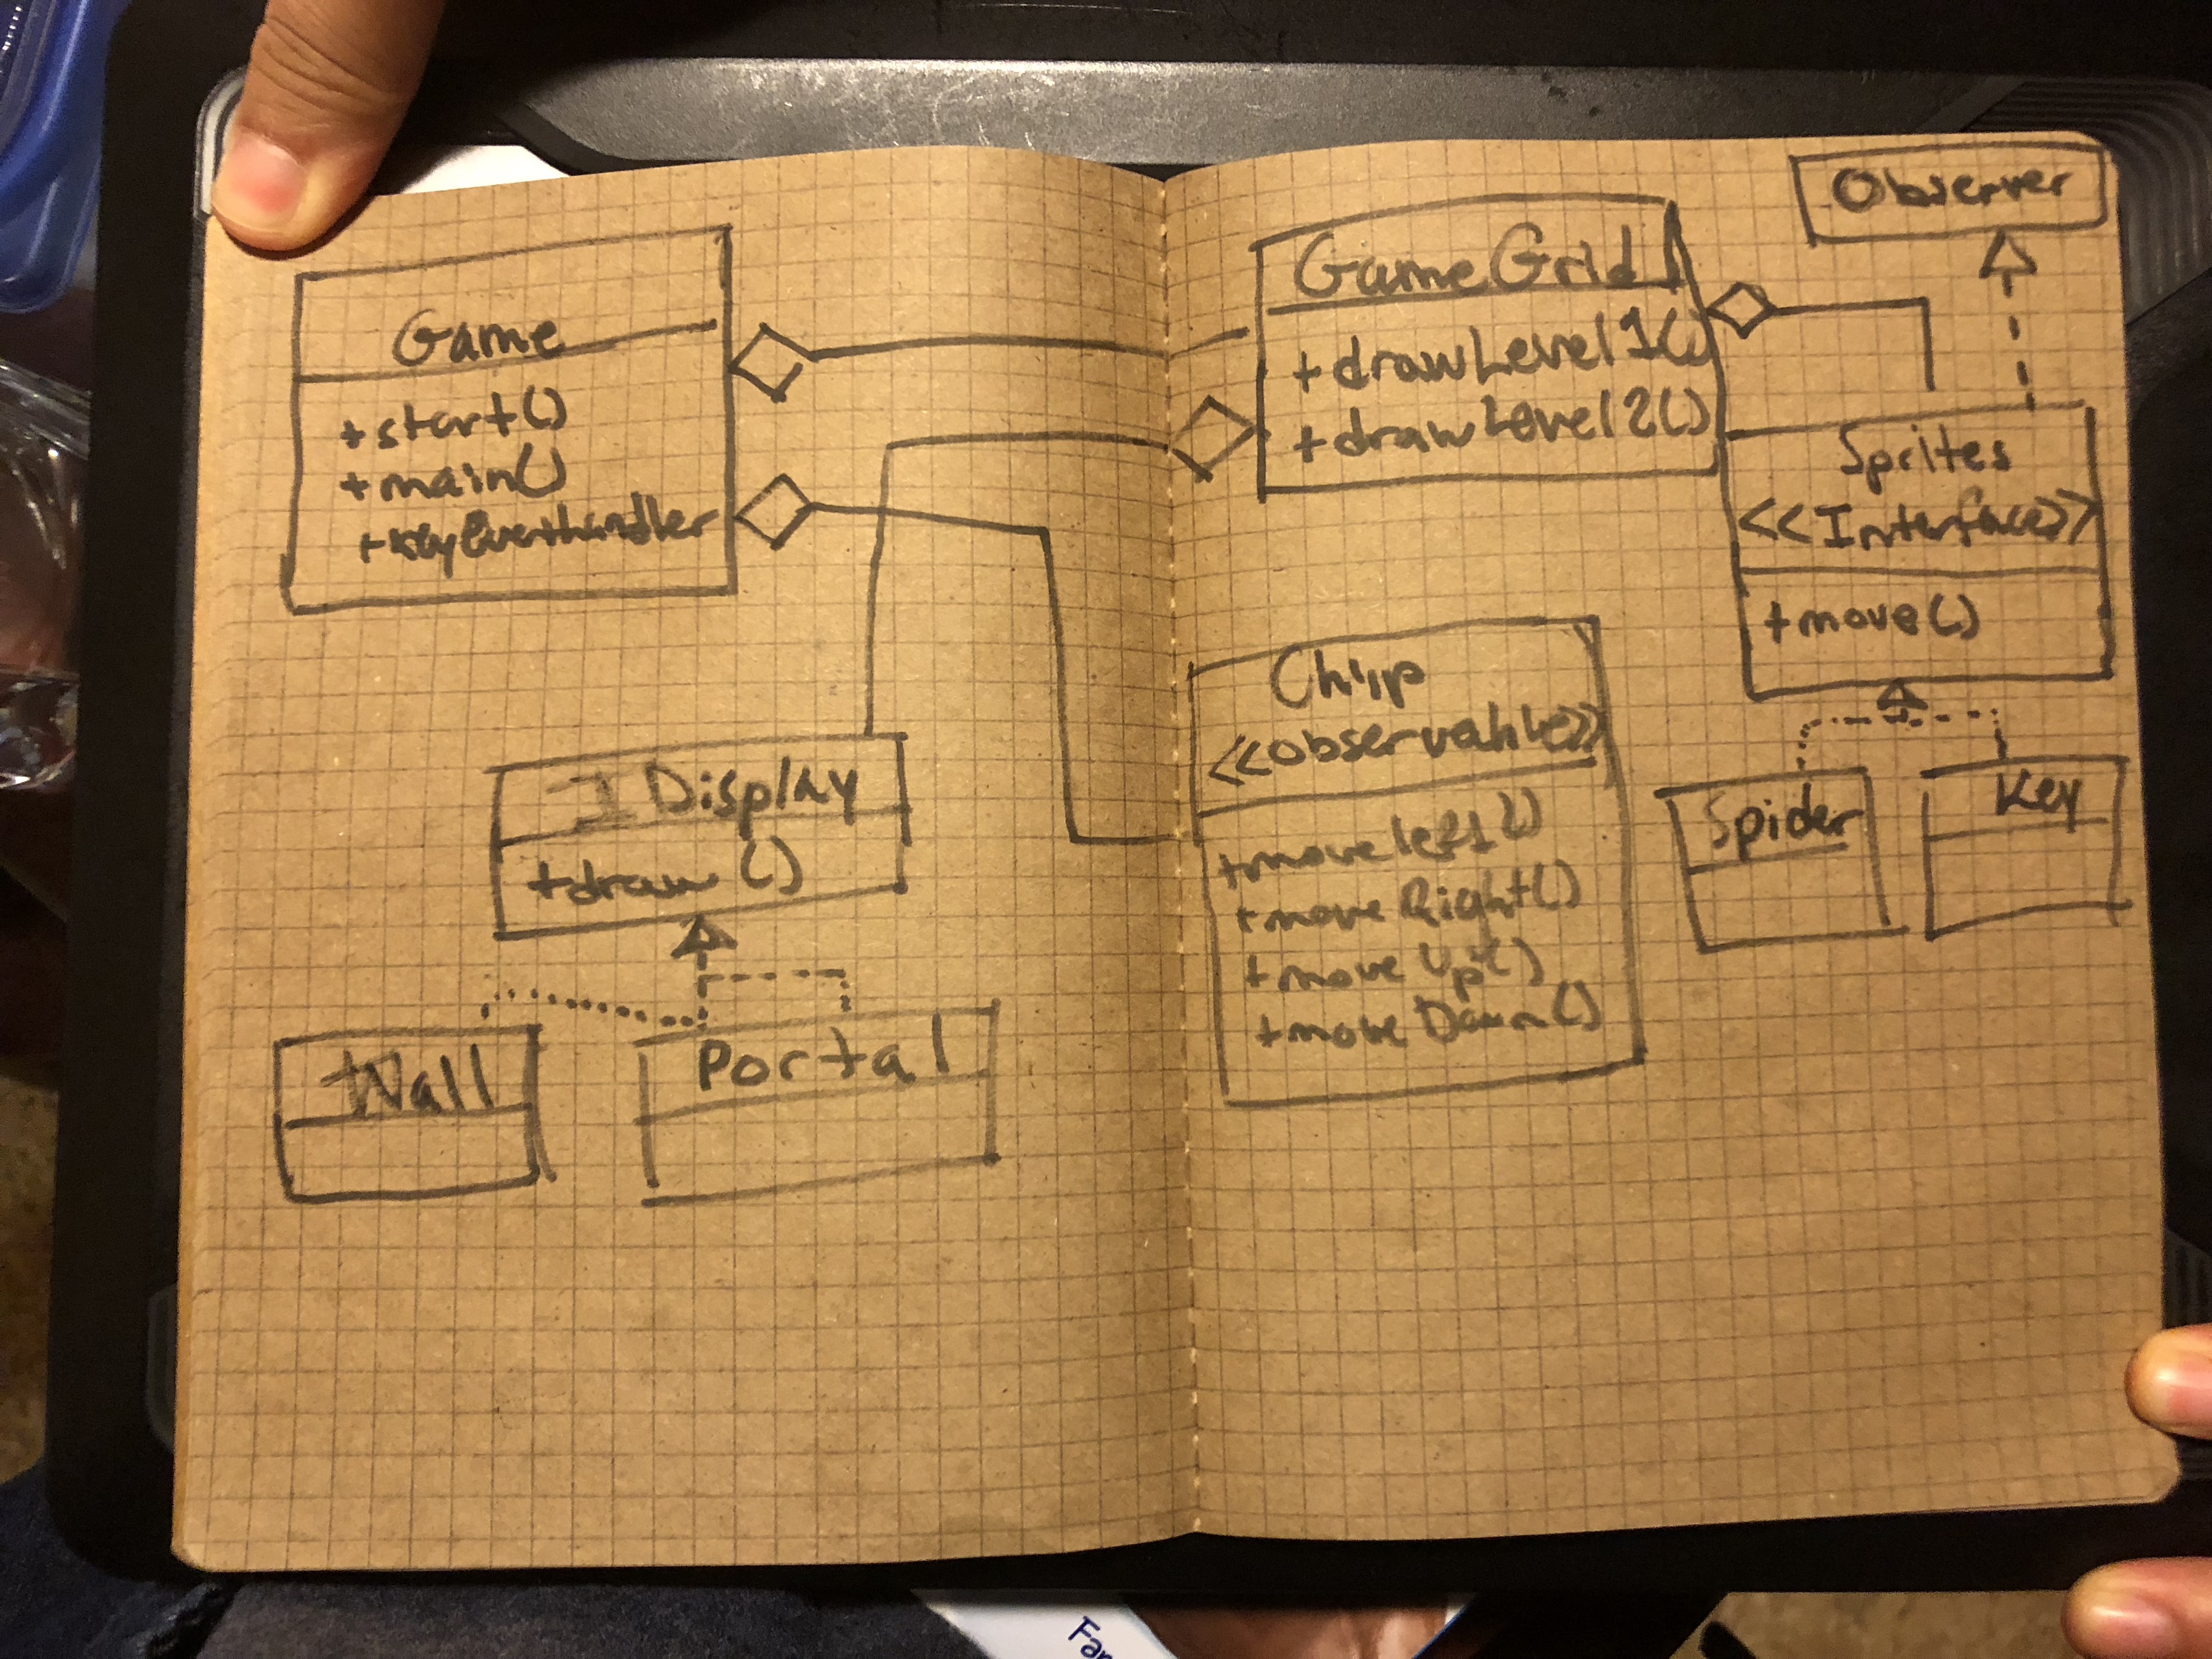 Game
+start()
+main()
+KeyEventHandler
IDisplay
+draw()
Wall
Portal
GameGrid
+drawLevel1()
+drawLevel2()
Chip
<<observable>>
+moveleft()
+moveRight()
+moveUp()
+moveDown()
Observer
Sprites
<<Interface>>
+move()
Spider
Key